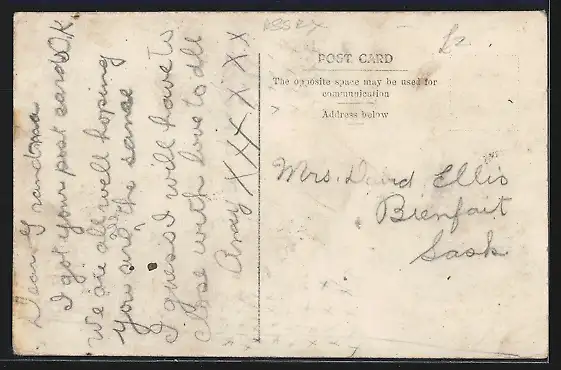 Dear Grandma
I got your post card OK
We are all well hoping
you are the same
I guess I will have to
close with love to all
Amy X X X X X X
ESSEX
£2
POST CARD
The opposite space may be used for
communication
Address below
Mrs. David Ellis
Bienfait
Sask